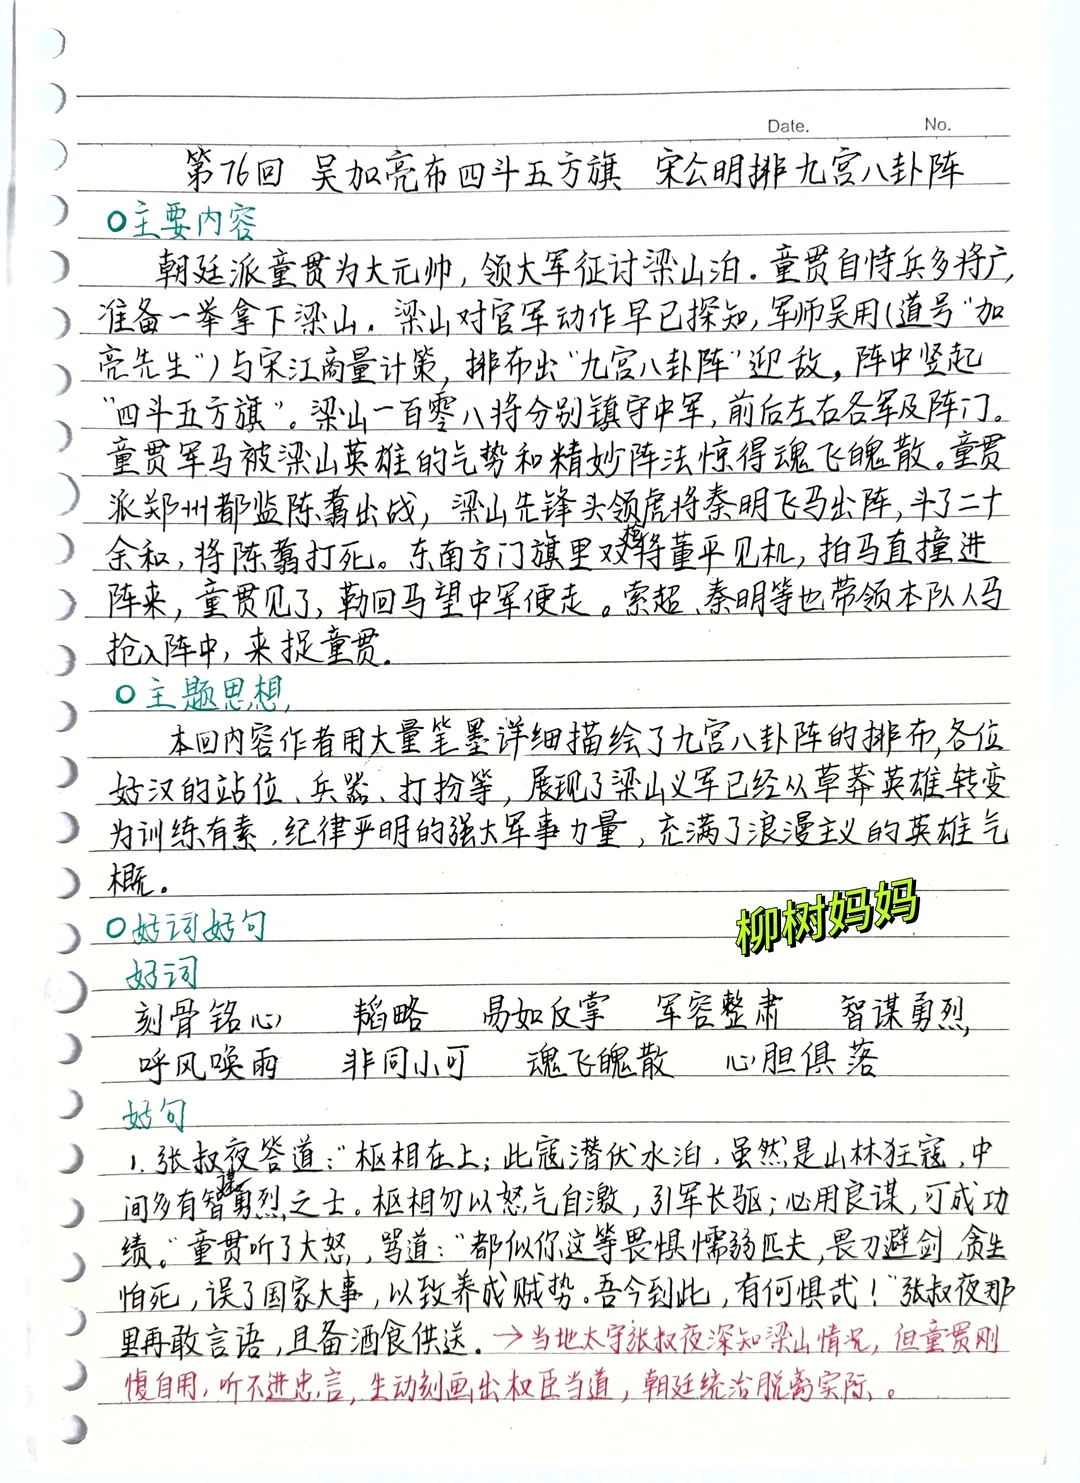 Date. No.
第76回 吴加亮布四斗五方旗 宋公明排九宫八卦阵
主要内容
朝廷派童贯为大元帅，领大军征讨梁山泊。童贯自恃兵多将广，
准备一举拿下梁山。梁山对官军动作早已探知，军师吴用(道号“加
亮先生”)与宋江商量计策，排布出“九宫八卦阵”迎敌，阵中竖起
“四斗五方旗”。梁山一百零八将分别镇守中军，前后左右各军及阵门。
童贯军马被梁山英雄的气势和精妙阵法惊得魂飞魄散。童贯
派郑州都监陈翥出战，梁山先锋头领虎将秦明飞马出阵，斗了二十
余和，将陈翥打死。东南方门旗里双枪将董平见机，拍马直撞进
阵来，童贯见了，勒回马望中军便走。索超、秦明等也带领本队人马
抢入阵中，来捉童贯.
主题思想
本回内容作者用大量笔墨详细描绘了九宫八卦阵的排布，各位
好汉的站位、兵器、打扮等，展现了梁山义军已经从草莽英雄转变
为训练有素，纪律严明的强大军事力量，充满了浪漫主义的英雄气
概。
柳树妈妈
好词好句
好词
刻骨铭心 韬略 易如反掌 军容整肃 智谋勇烈
呼风唤雨 非同小可 魂飞魄散 心胆俱落
好句
1. 张叔夜答道：“枢相在上；此寇潜伏水泊，虽然是山林狂寇，中
间多有智谋勇烈之士。枢相勿以怒气自激，引军长驱；必用良谋，可成功
绩。”童贯听了大怒，骂道：“都似你这等畏惧懦弱匹夫，畏刀避剑，贪生
怕死，误了国家大事，以致养成贼势。吾今到此，有何惧哉！”张叔夜那
里再敢言语，且备酒食供送。→当地太守张叔夜深知梁山情况，但童贯刚
愎自用，听不进忠言，生动刻画出权臣当道，朝廷统治脱离实际。